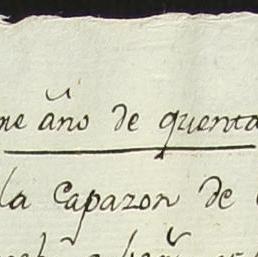 me año de quenta
la capazon de